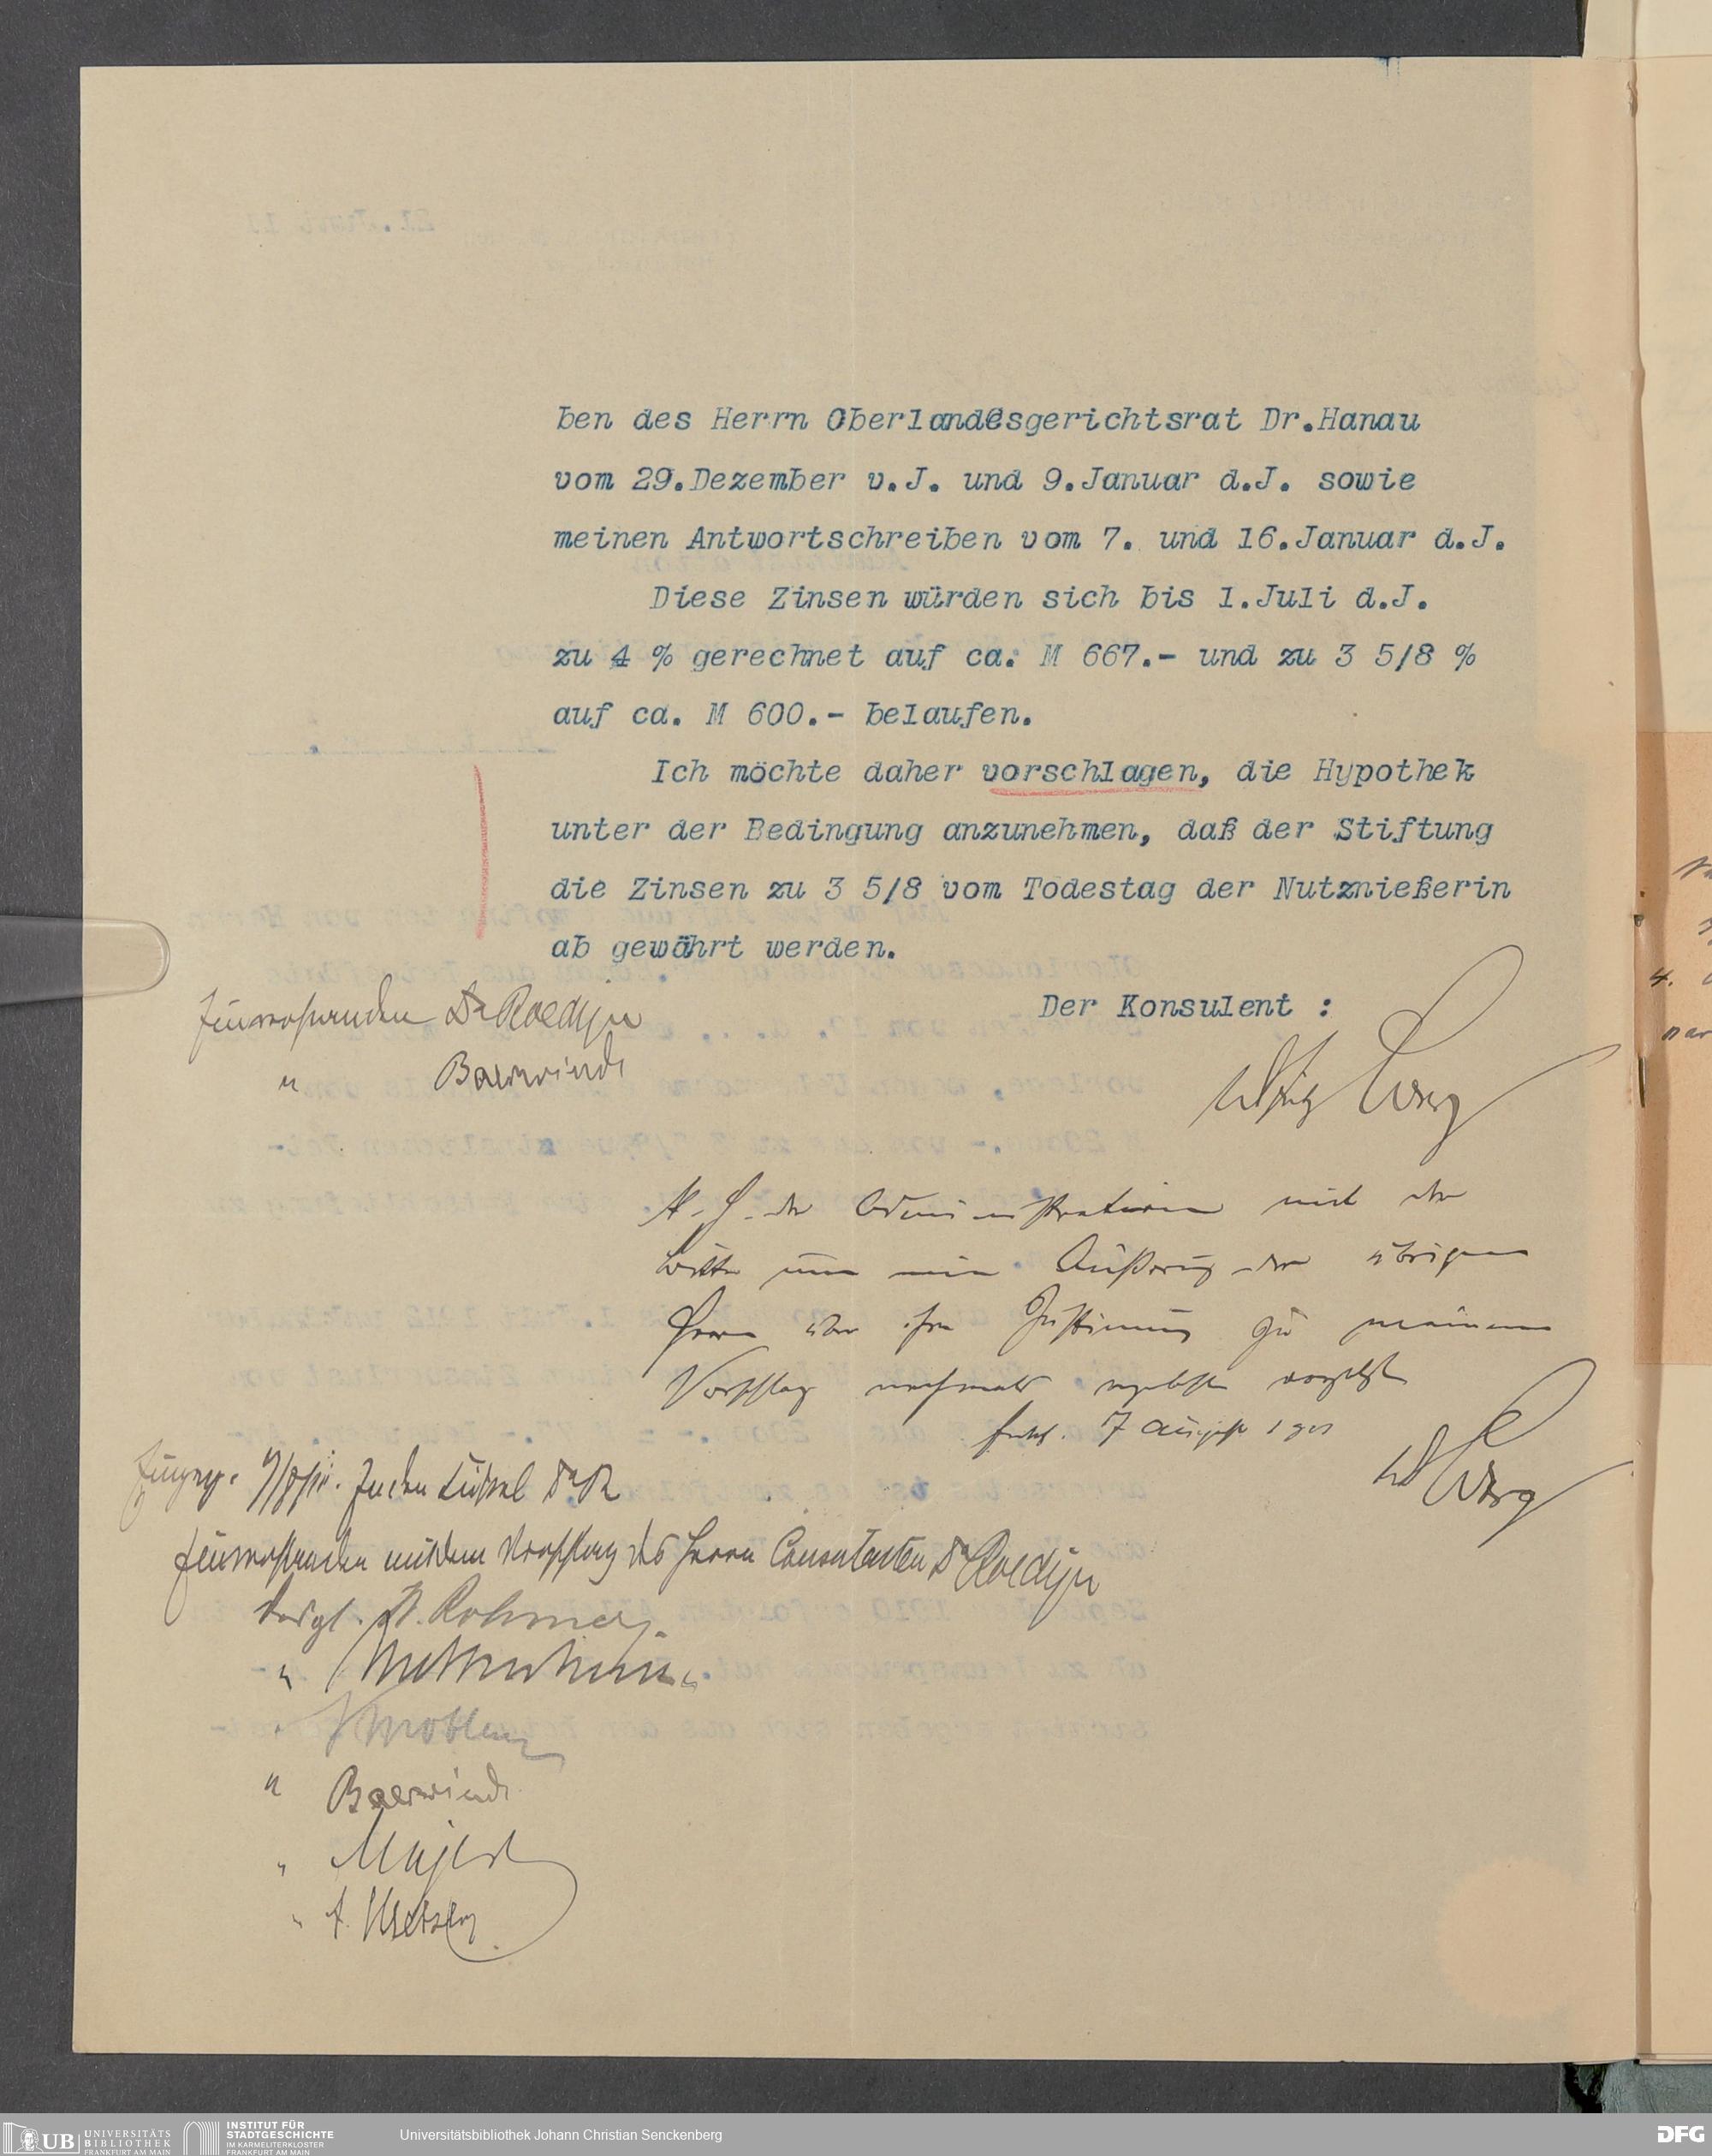 ben des Herrn Oberlandesgerichtsrat Dr.Hanau
vom 29.Dezember v.J. und 9.Januar d.J. sowie
meinen Antwortschreiben vom 7. und 16.Januar d.J.
Diese Zinsen würden sich bis 1.Juli d.J.
zu 4 % gerechnet auf ca. M 667.- und zu 3 5/8 %
auf ca. M 600.- belaufen.
Ich möchte daher vorschlagen, die Hypothek
unter der Bedingung anzunehmen, daß der Stiftung
die Zinsen zu 3 5/8 vom Todestag der Nutznießerin
ab gewährt werden.
Der Konsulent :
Einverstanden Dr Roediger
" Baerwindt
der Administration mit der
Bitte um eine Äußerung der übrigen
Herren über ihre Zustimmung zu meinem
Vorschlag nochmals vorgelegt
7 August
Einverstanden mit dem Vorschlag des Herrn Consulenten Dr Roediger
desgl.
"
" Baerwindt
"
"
UB UNIVERSITÄTS
BIBLIOTHEK
FRANKFURT AM MAIN
INSTITUT FÜR
STADTGESCHICHTE
IM KARMELITERKLOSTER
FRANKFURT AM MAIN
Universitätsbibliothek Johann Christian Senckenberg
DFG